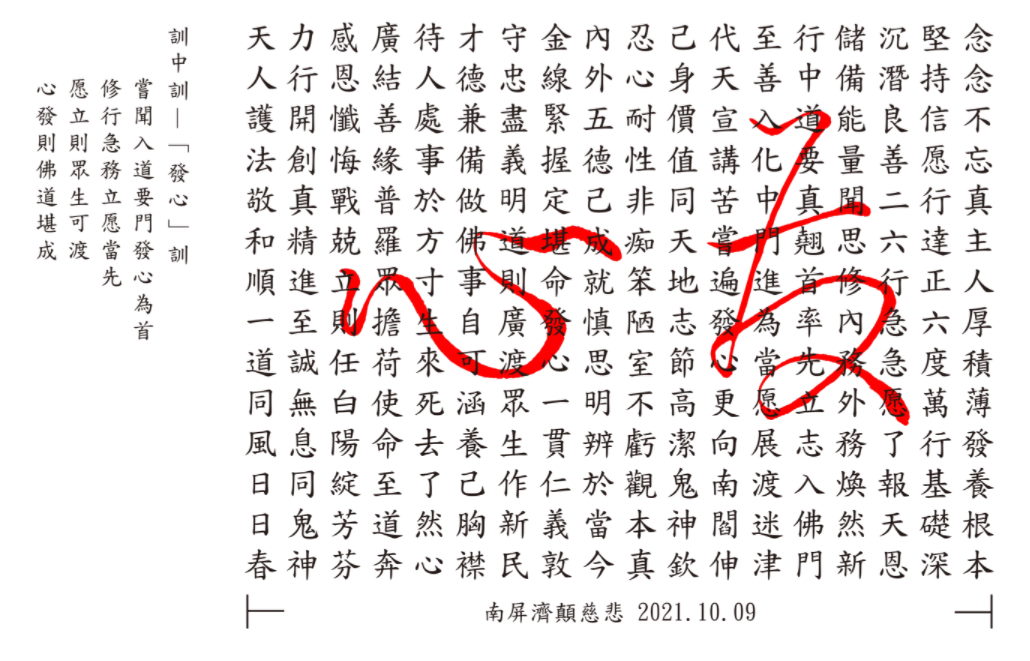 念念不忘真主人厚積薄發養根本
堅持信愿行達正六度萬行基礎深
沉潛良善二六行急急愿了報天恩
儲備能量聞思修內務外務煥然新
行中道要真翹首率先立志入佛門
至善入化中門進為當愿展渡迷津
代天宣講苦嘗遍發心更向南閻伸
己身價值同天地志節高潔鬼神欽
忍心耐性非痴笨陋室不虧觀本真
內外五德己成就慎思明辨於當今
金線緊握定堪命發心一貫仁義敦
守忠盡義明道則廣渡眾生作新民
才德兼備做佛事自可涵養己胸襟
待人處事於方寸生來死去了然心
廣結善緣普羅眾擔荷使命至道奔
感恩懺悔戰兢立則任白陽綻芳芬
力行開創真精進至誠無息同鬼神
天人護法敬和順一道同風日日春
發心
訓中訓—「發心」訓
嘗聞入道要門發心為首
修行急務立愿當先
愿立則眾生可渡
心發則佛道堪成
南屏濟顛慈悲 2021.10.09